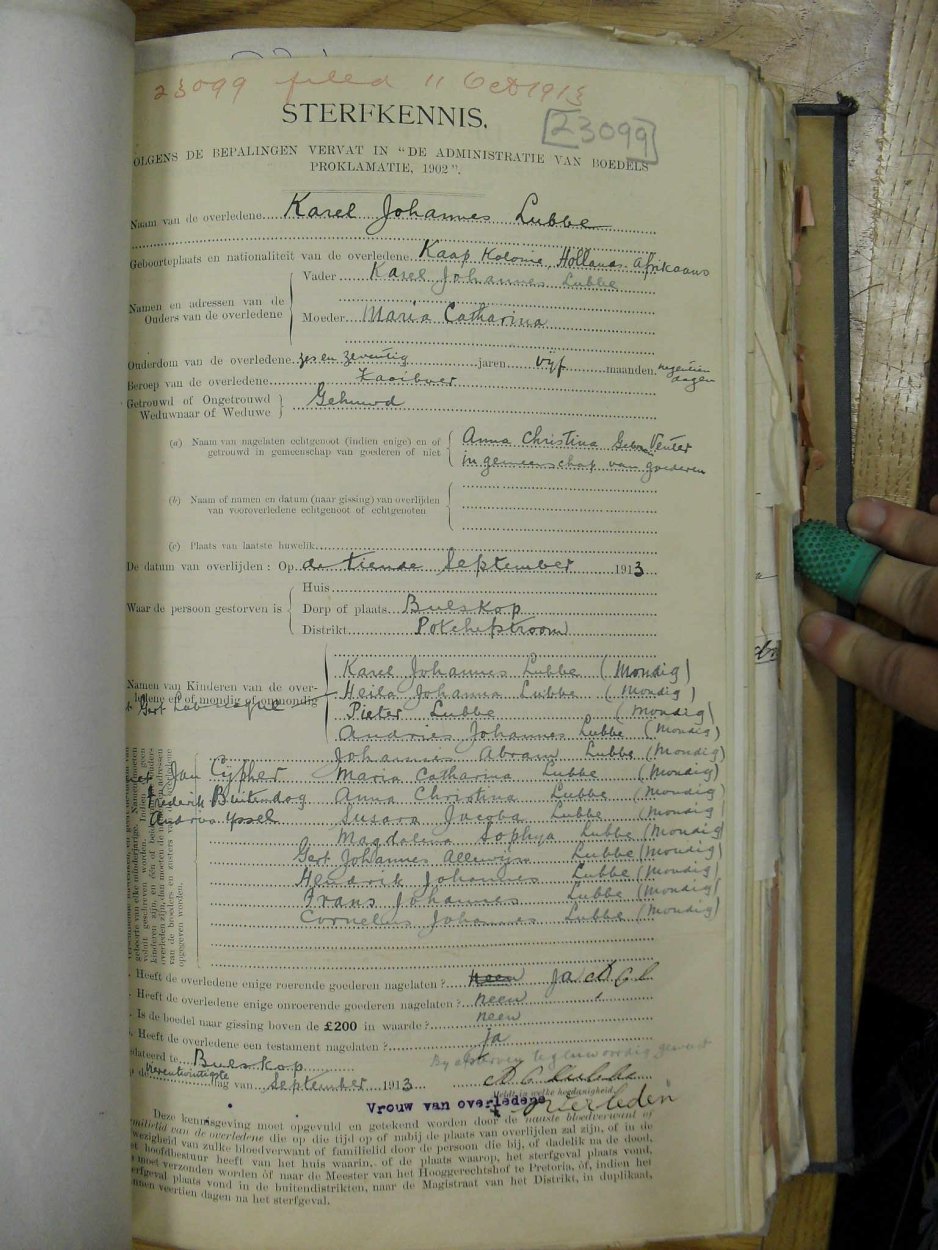 23099 filed 11 Oct 1913
STERFKENNIS.
23099
OLGENS DE BEPALINGEN VERVAT IN "DE ADMINISTRATIE VAN BOEDELS
PROKLAMATIE, 1902".
Naam van de overledene Karel Johannes Lubbe
Geboorteplaats en nationaliteit van de overledene Kaap Kolonie, Hollands Afrikaans
Namen en adressen van de Ouders van de overledene
Vader Karel Johannes Lubbe
Moeder Maria Catharina
Ouderdom van de overledene zes en zeventig jaren vijf maanden negentien dagen
Beroep van de overledene
Getrouwd of Ongetrouwd
Weduwnaar of Weduwe
Gehuwd
(a) Naam van nagelaten echtgenoot (indien enige) en of
getrouwd in gemeenschap van goederen of niet
Anna Christina Geb Venter
in gemeenschap van goederen
(b) Naam of namen en datum (naar gissing) van overlijden
van vooroverledene echtgenoot of echtgenoten
(c) Plaats van laatste huwelik
De datum van overlijden : Op de tiende September 1913
Waar de persoon gestorven is
Huis
Dorp of plaats Bulskop
Distrikt Potchefstroom
Namen van Kinderen van de over-
ledene en of mondig of onmondig
Karel Johannes Lubbe (Mondig)
Heila Johanna Lubbe (Mondig)
Pieter Lubbe (Mondig)
Andries Johannes Lubbe (Mondig)
Johannis Abram Lubbe (Mondig)
Jan Cypher Maria Catharina Lubbe (Mondig)
Frederik Buitendag Anna Christina Lubbe (Mondig)
Andries Yssel Susara Jacoba Lubbe (Mondig)
Magdalena Sophya Lubbe (Mondig)
Gert Johannes Allewijn Lubbe (Mondig)
Hendrik Johannes Lubbe (Mondig)
Frans Johannes Lubbe (Mondig)
Cornelius Johannes Lubbe (Mondig)
Heeft de overledene enige roerende goederen nagelaten? neen Ja
Heeft de overledene enige onroerende goederen nagelaten? neen
Is de boedel naar gissing boven de £200 in waarde? neen
Heeft de overledene een testament nagelaten? ja
dateerd te Bulskop
By afsterven tegenwoordig geweest
dag van September 1913
A C Lubbe
Meldt in welke hoedanigheid.
Vrouw van overledene
Deze kennisgeving moet opgevuld en getekend worden door de naaste bloedverwant of
familielid van de overledene die op die tijd op of nabij de plaats van overlijden zal zijn, of in de
wezigheid van zulke bloedverwant of familielid door de persoon die bij, of dadelik na de dood,
et hoofdbestuur heeft van het huis waarin, of de plaats waarop, het sterfgeval plaats vond,
moet verzonden worden òf naar de Meester van het Hooggerechtshof te Pretoria, òf, indien het
erfgeval plaats vond in de buitendistrikten, naar de Magistraat van het Distrikt, in duplikaat,
nnen veertien dagen na het sterfgeval.